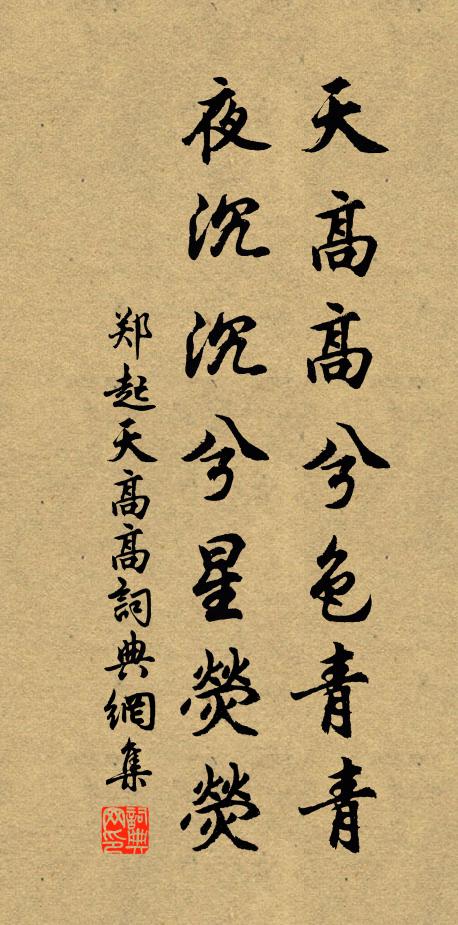 天高高兮色青青
夜沉沉兮星熒熒
郑起天高高詞典網集
詞典网印